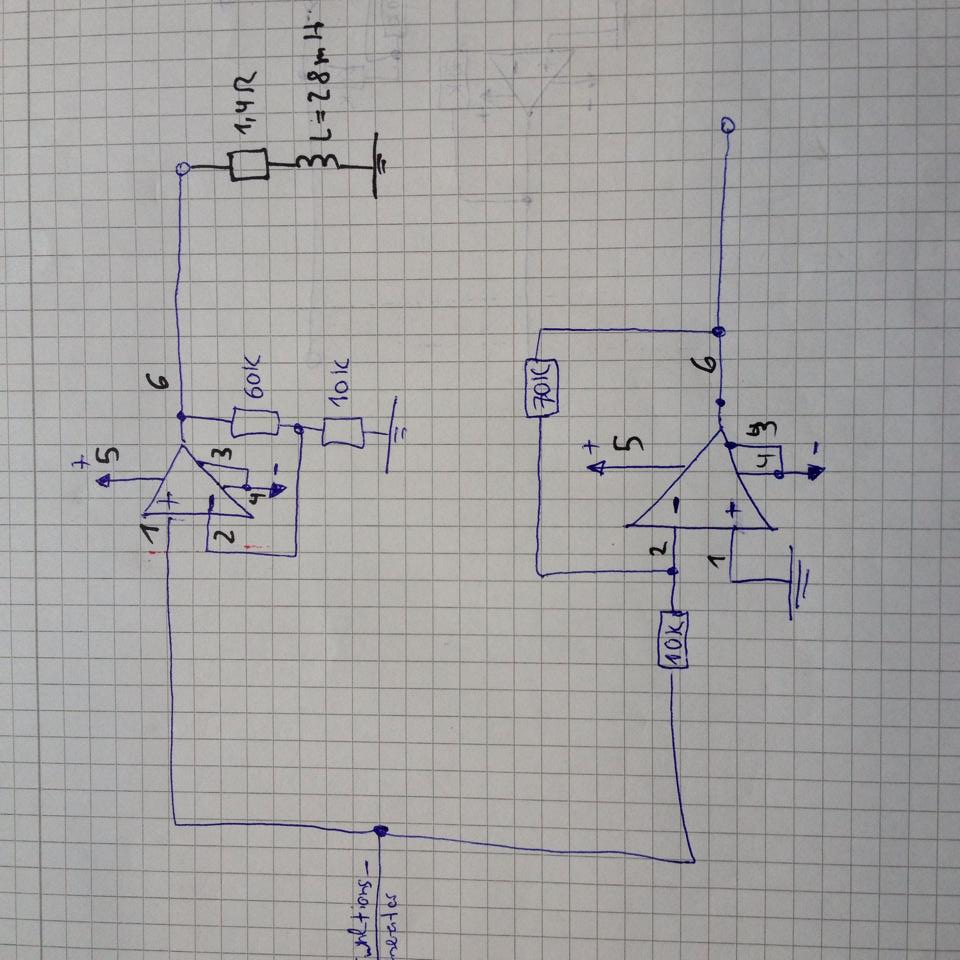 +
5
1
+
6
2
-
3
4
-
60K
10K
1,4Ω
L=28mH
unktions-
nerator
70K
+
5
2
-
6
10K
1
+
4
3
-